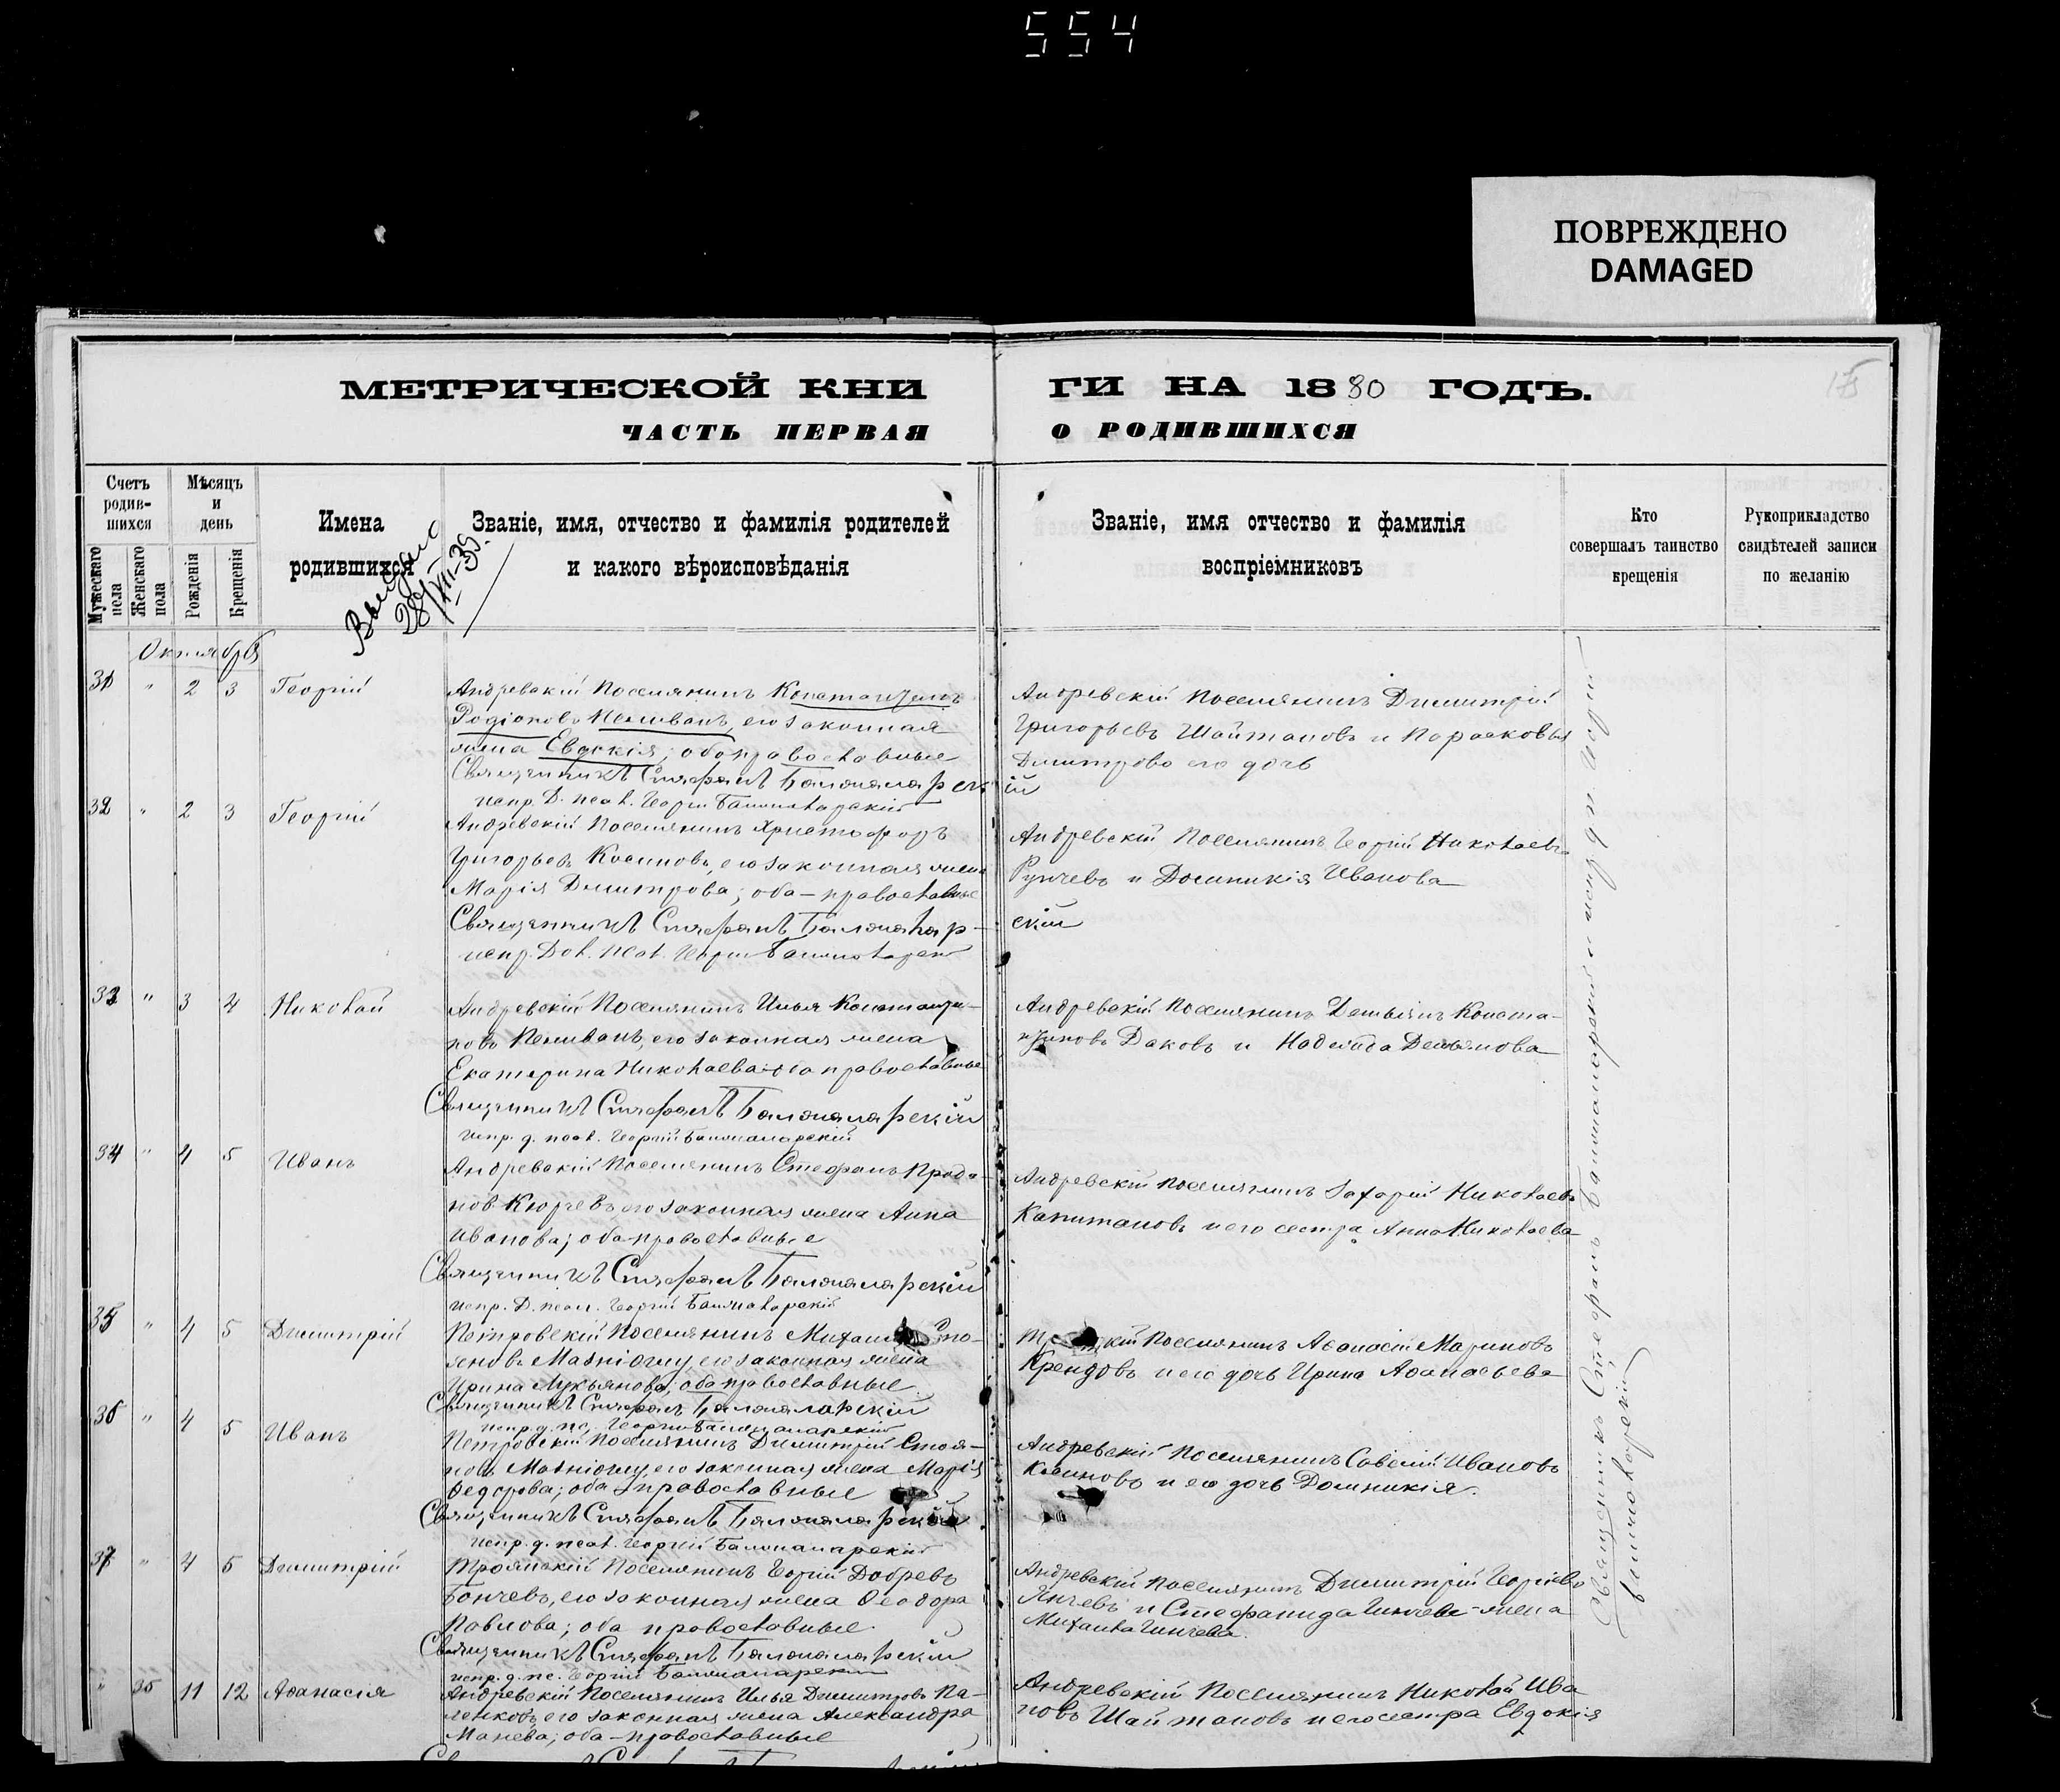 554
ПОВРЕЖДЕНО
DAMAGED
МЕТРИЧЕСКОЙ КНИ
ГИ НА 1880 ГОДЪ.
ЧАСТЬ ПЕРВАЯ
О РОДИВШИХСЯ
Счетъ родившихся
Мужескаго пола
Женскаго пола
Мѣсяцъ и день
Рожденія
Крещенія
Имена
родившихся
Званіе, имя, отчество и фамилія родителей
и какого вѣроисповѣданія
Званіе, имя отчество и фамилія
воспріемниковъ
Кто
совершалъ таинство
крещенія
Рукоприкладство
свидѣтелей записи
по желанію
Выдано
28/VII-39.
Октябрь
31 " 2 3 Георгій
Андревскій Поселянинъ Константинъ
Родіоновъ Пеливанъ, его законная
жена Евдокія; оба православные
Священникъ Стефанъ Баломаларск
испр. Д. псал. Георгій
Андревскій Поселянинъ Димитрій
Григорьевъ Шайтановъ и Парасковія
Дмитрова его дочь
ій
32 " 2 3 Георгій
Андревскій Поселянинъ Христофоръ
Григорьевъ Косиновъ, его законная жена
Марія Димитрова; оба-православные
Священникъ Стефанъ
испр. Псал. Георгій
Андревскій Поселянинъ Георгій Николаевъ
Рупчевъ и Домникія Иванова
скій
33 " 3 4 Николай
Андревскій Поселянинъ Илья Константи-
новъ Пеливанъ, его законная жена
Екатерина Николаева оба православные
Священникъ Стефанъ
испр. д. псал. Георгій
Андревскій Поселянинъ Демьянъ Конста-
нтиновъ Даковъ и Надежда Демьянова
34 " 4 5 Иванъ
Андревскій Поселянинъ Стефанъ Прода-
новъ Кюрчевъ его законная жена Анна
Иванова; оба православные
Священникъ Стефанъ
испр. Д. псал. Георгій
Андревскій Поселянинъ Захарій Николаевъ
Капитановъ и его сестра Анна Николаева
35 " 4 5 Димитрій
Петровскій Поселянинъ Михаилъ Сто-
яновъ его законная жена
Ирина Лукьянова; оба православные
Священникъ Стефанъ
испр. д. пс. Георгій
Поселянинъ Аѳанасій Мариновъ
Крендовъ и его дочь Ирина Аѳанасьева
36 " 4 5 Иванъ
Петровскій Поселянинъ Димитрій Стоя-
новъ его законная жена Марія
Ѳедорова; оба православные
Священникъ Стефанъ
испр. д. псал. Георгій
Андревскій Поселянинъ Савелій Ивановъ
Косиновъ и его дочь Домникія.
37 " 4 5 Димитрій
Троянскій Поселянинъ Георгій Добревъ
Бончевъ, его законная жена Ѳеодора
Павлова; оба православные
Священникъ Стефанъ
испр. д. пс. Георгій
Андревскій Поселянинъ Димитрій Георгіевъ
Янчевъ и Стефанида Гинчева - жена
Михаила Гинчева.
" 35 11 12 Аѳанасія
Андревскій Поселянинъ Илья Димитровъ Па-
ленковъ, его законная жена Александра
Манева; оба-православные
Андревскій Поселянинъ Николай Ива
новъ Шайтановъ и его сестра Евдокія
Священникъ Стефанъ